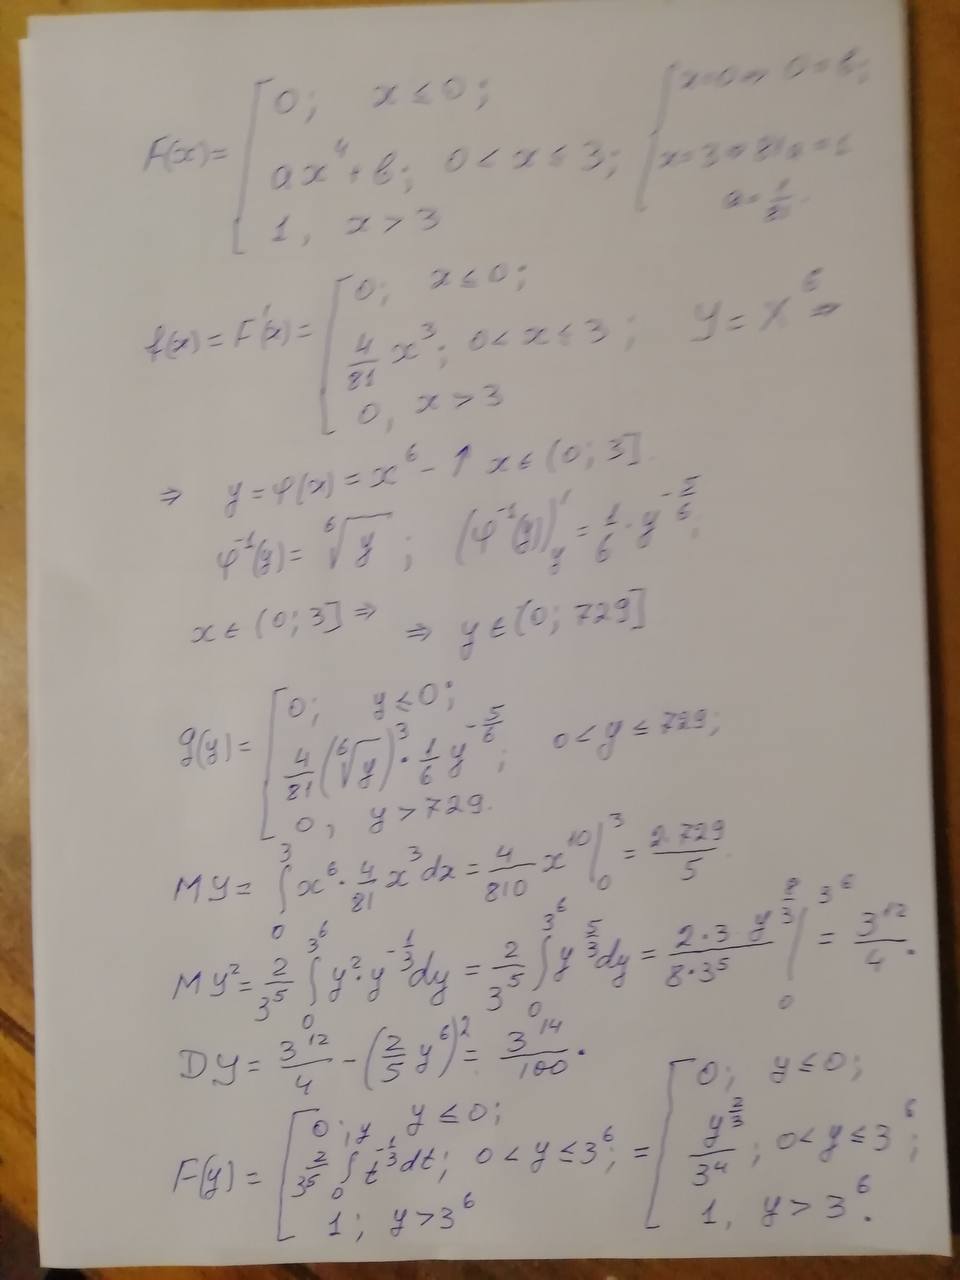 F(x) = [ 0; x ≤ 0; ax⁴ + b; 0 < x ≤ 3; 1, x > 3 [ x=0 ⇒ 0 = b; x=3 ⇒ 81a = 1 a = 1/81.
f(x) = F'(x) = [ 0; x ≤ 0; 4/81 x³; 0 < x ≤ 3; 0, x > 3 y = x⁶ ⇒
⇒ y = φ(x) = x⁶ - ↑ x ∈ (0; 3].
φ⁻¹(y) = ⁶√y; (φ⁻¹(y))'_y = 1/6 · y^(-5/6);
x ∈ (0; 3] ⇒ ⇒ y ∈ (0; 729]
g(y) = [ 0; y ≤ 0; 4/81 (⁶√y)³ · 1/6 y^(-5/6); 0 < y ≤ 729; 0, y > 729.
MY = ∫₀³ x⁶ · 4/81 x³ dx = 4/810 x¹⁰ |₀³ = 2·729/5.
MY² = 2/3⁵ ∫₀^(3⁶) y² · y^(-1/3) dy = 2/3⁵ ∫₀^(3⁶) y^(5/3) dy = (2·3·y^(8/3))/(8·3⁵) |₀^(3⁶) = 3¹²/4.
DY = 3¹²/4 - (2/5 y⁶)² = 3¹⁴/100.
F(y) = [ 0; y ≤ 0; 2/3⁵ ∫₀^y t^(-1/3) dt; 0 < y ≤ 3⁶; 1; y > 3⁶ = [ 0; y ≤ 0; y^(2/3)/3⁴; 0 < y ≤ 3⁶; 1, y > 3⁶.